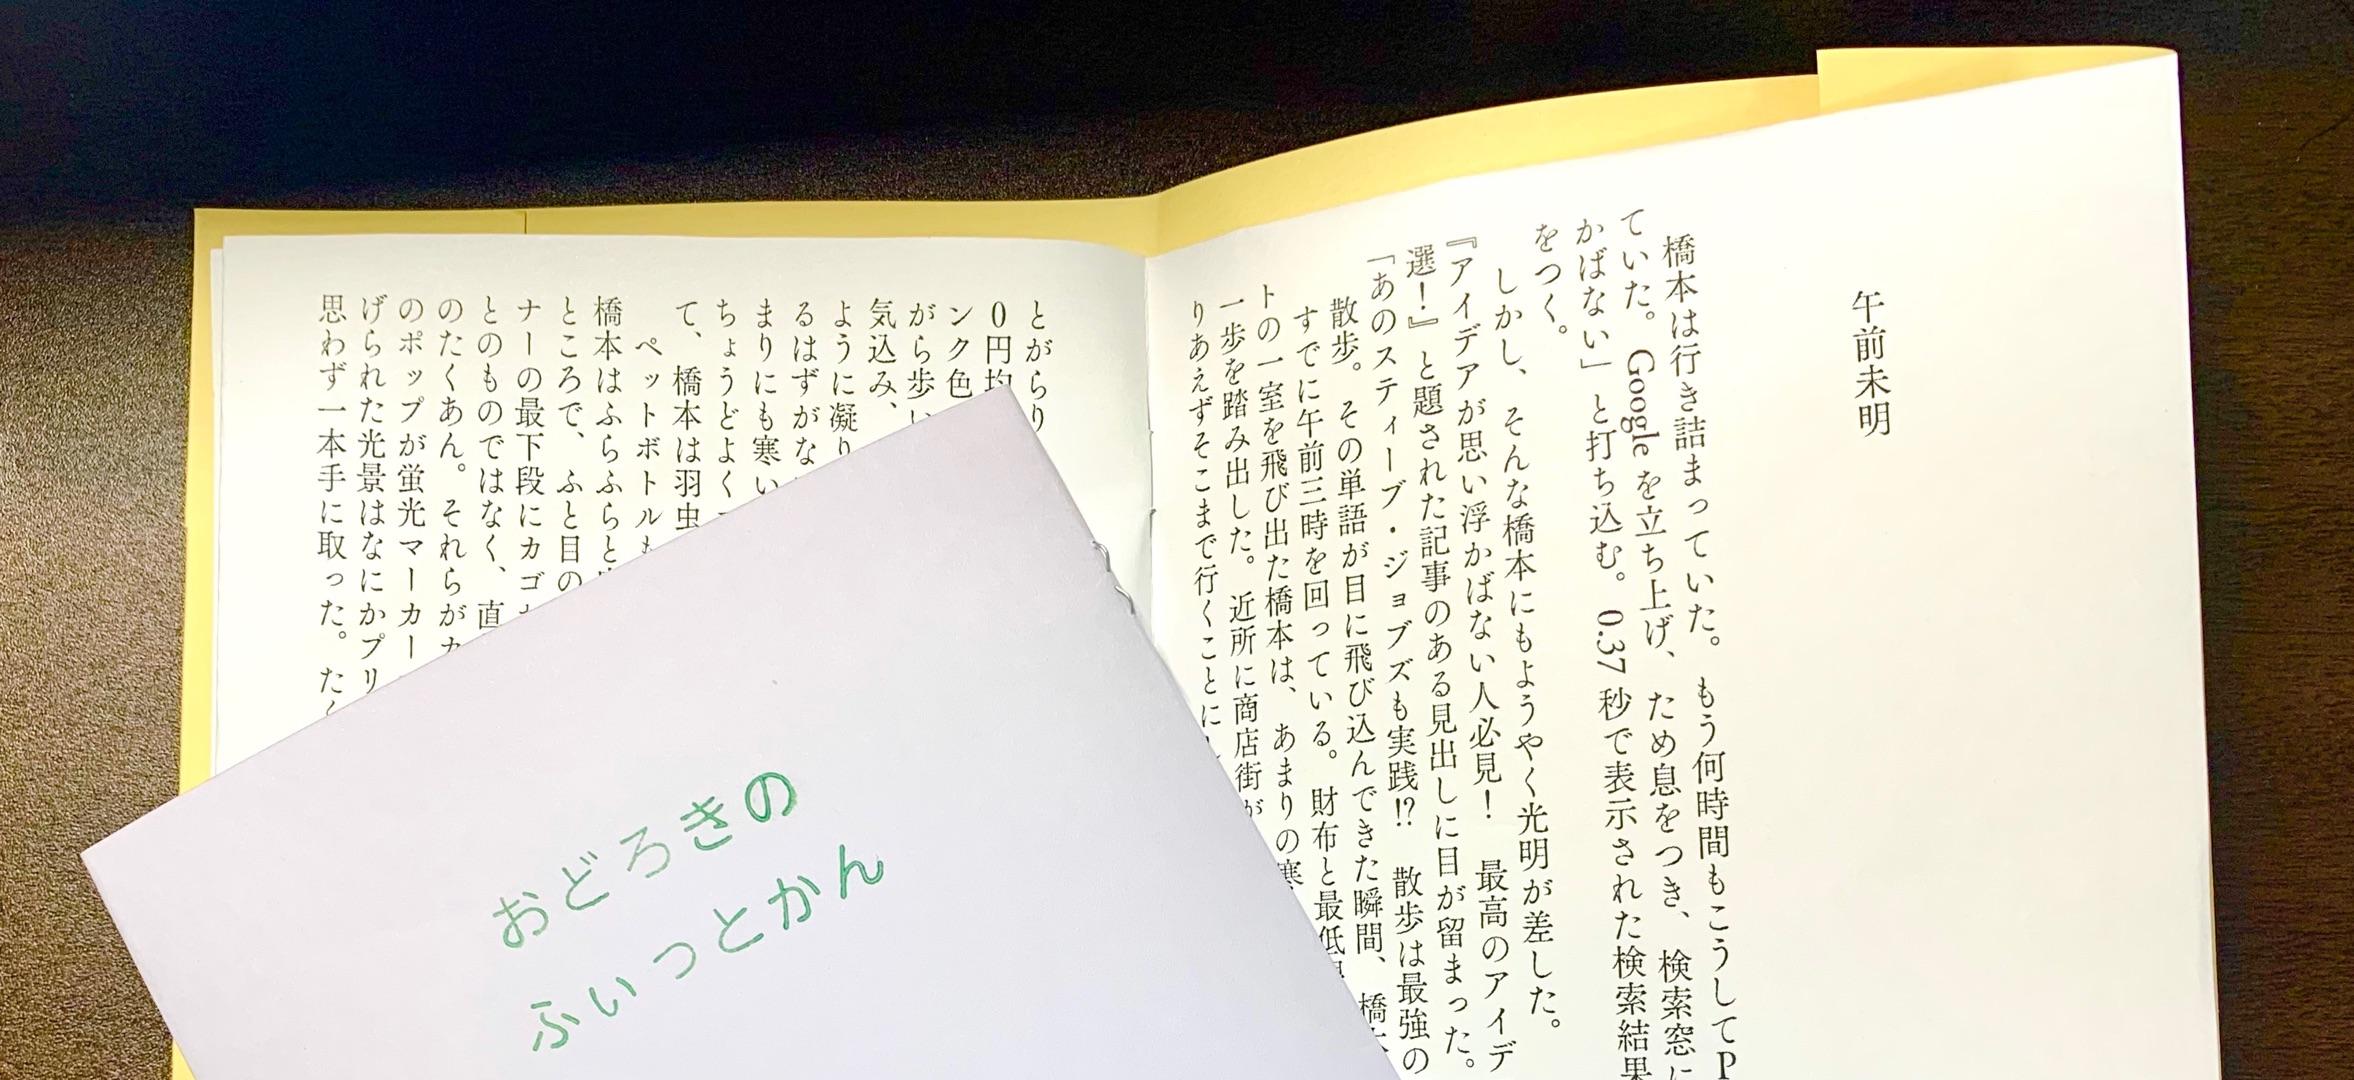 午前未明
橋本は行き詰まっていた。もう何時間もこうしてP
ていた。Googleを立ち上げ、ため息をつき、検索窓に
かばない」と打ち込む。0.37秒で表示された検索結果
をつく。
しかし、そんな橋本にもようやく光明が差した。
『アイデアが思い浮かばない人必見！　最高のアイデ
選！』と題された記事のある見出しに目が留まった。
「あのスティーブ・ジョブズも実践⁉　散歩は最強の
散歩。その単語が目に飛び込んできた瞬間、橋本
すでに午前三時を回っている。財布と最低
トの一室を飛び出た橋本は、あまりの寒
一歩を踏み出した。近所に商店街が
りあえずそこまで行くことに
とがらり
0円均
ンク色
がら歩い
気込み、
ように凝り
るはずがな
まりにも寒い
ちょうどよく
て、橋本は羽虫
ペットボトルも
橋本はふらふらと
ところで、ふと目の
ナーの最下段にカゴ
とのものではなく、直
のたくあん。それらがカ
のポップが蛍光マーカー
げられた光景はなにかプリ
思わず一本手に取った。たく
おどろきの
ふぃっとかん